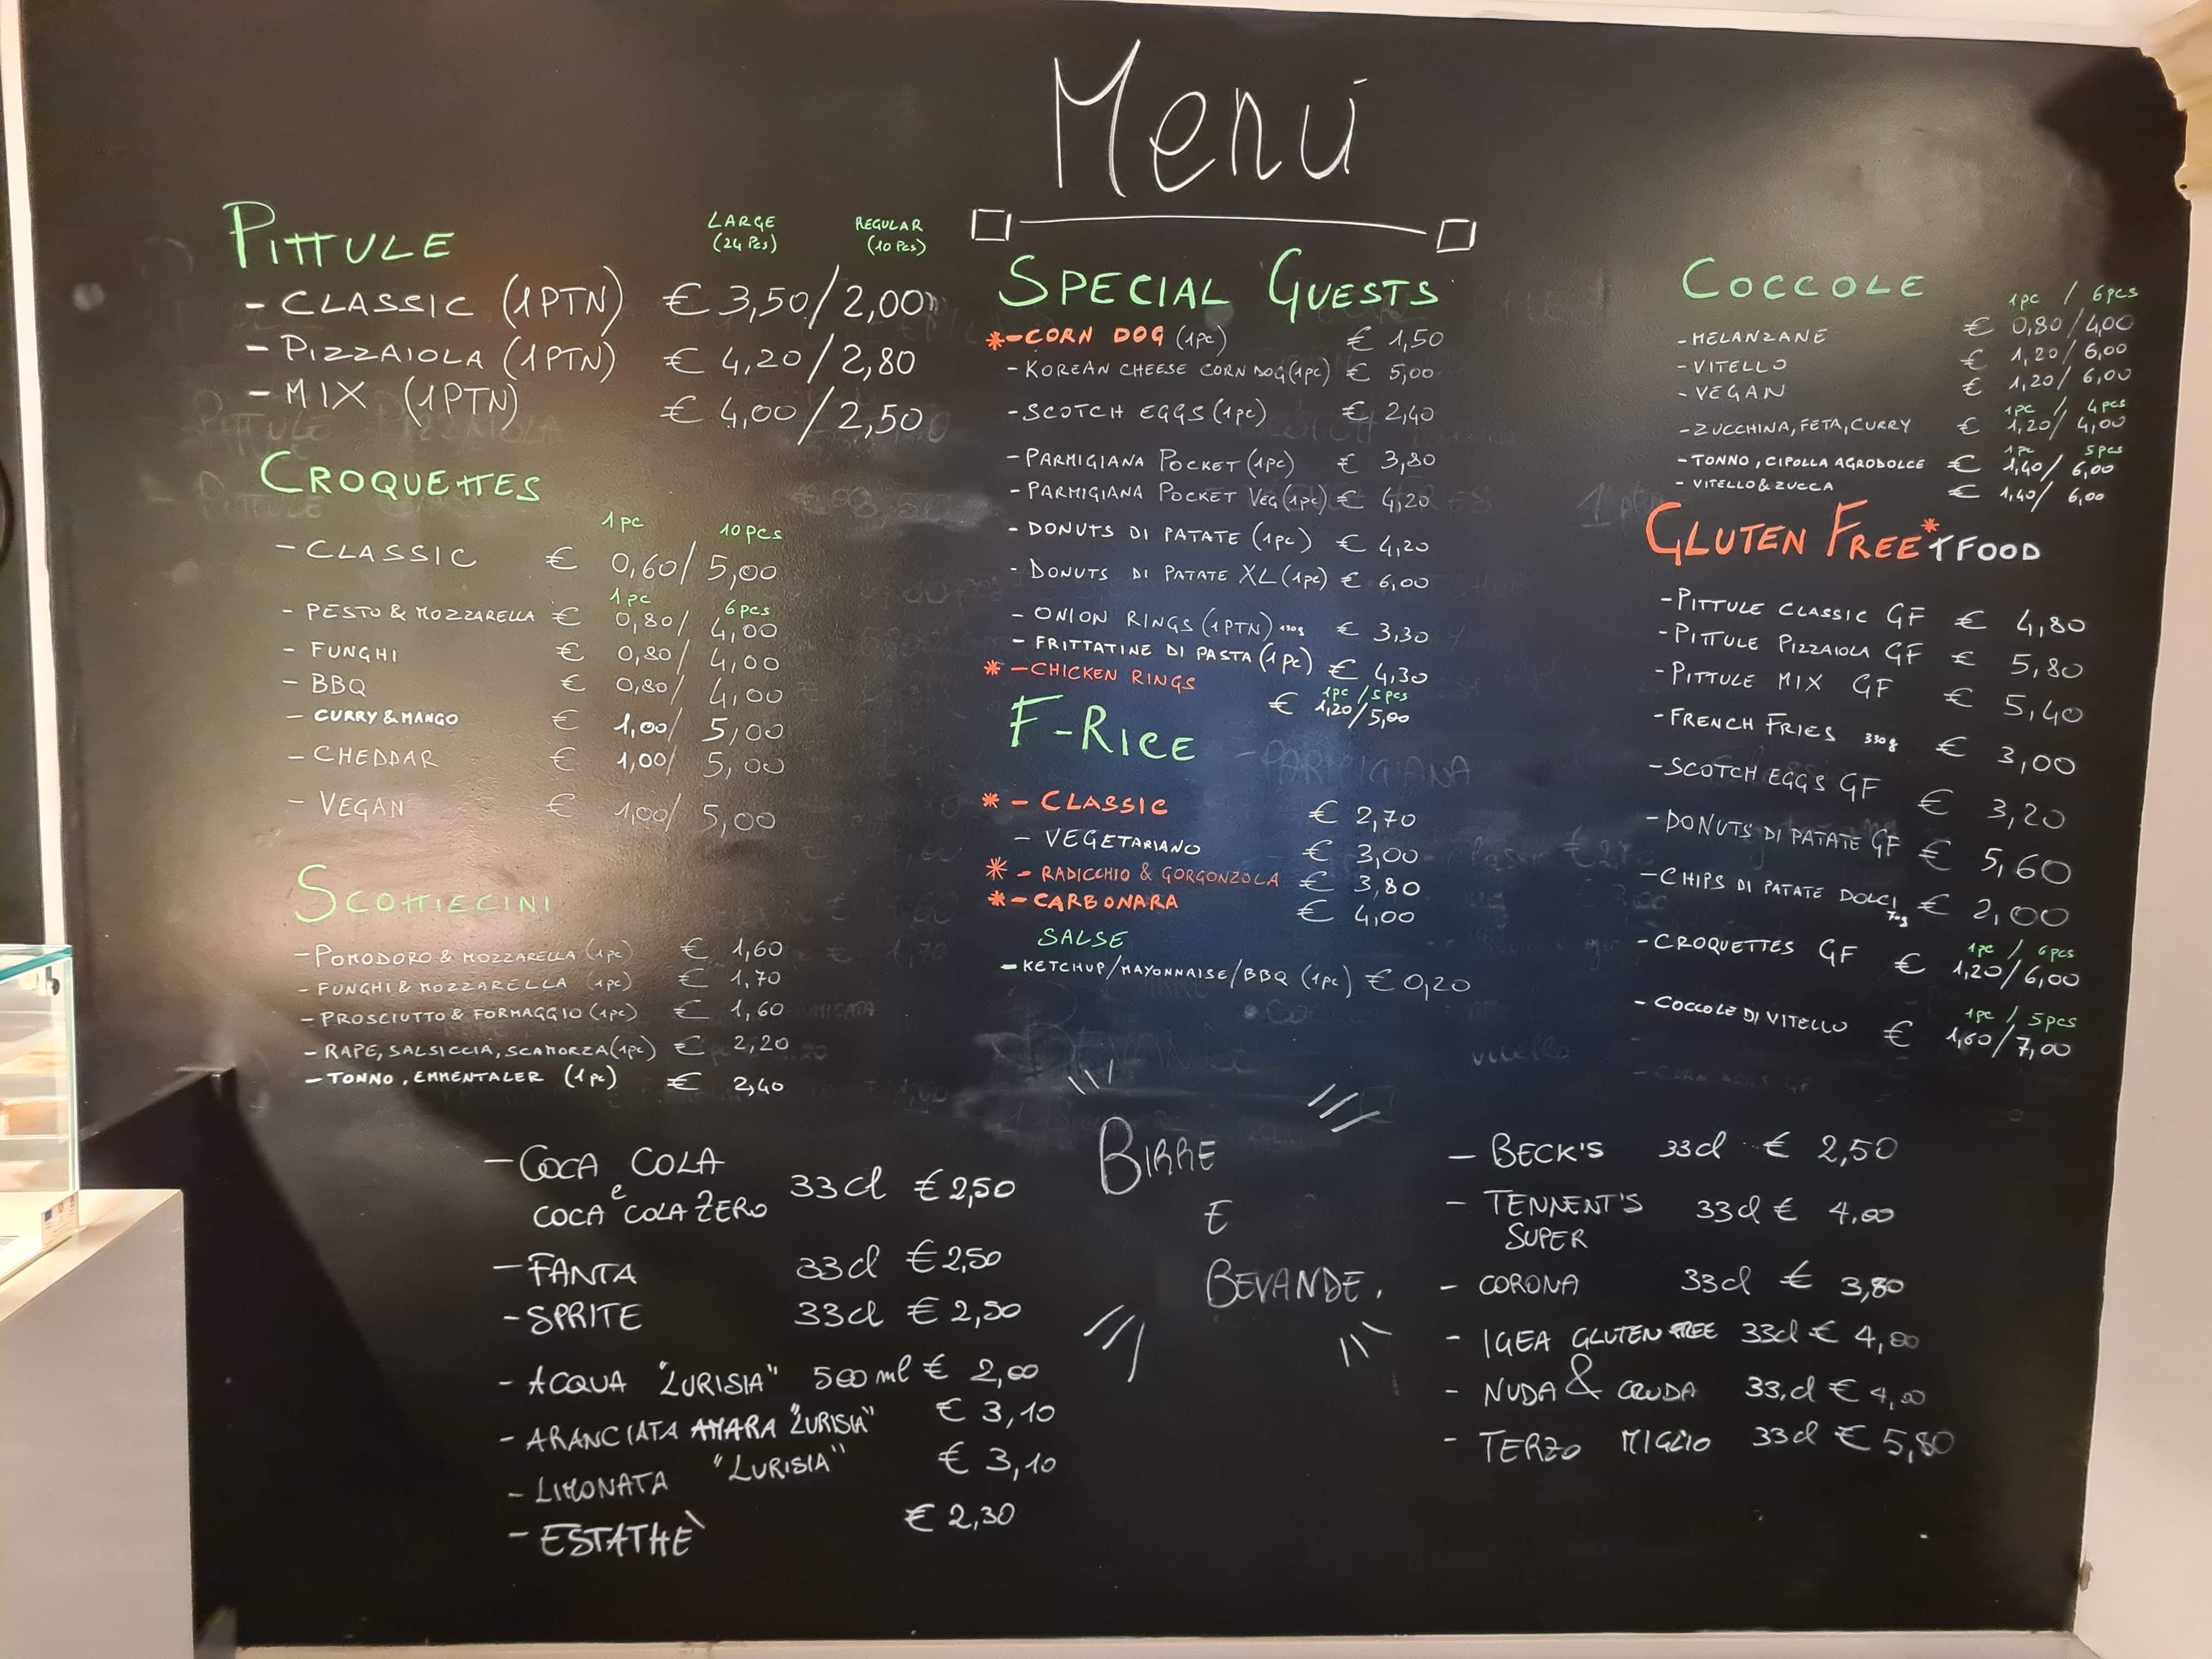 Menú
PITTULE
LARGE REGULAR
(24 Pcs) (10 Pcs)
- CLASSIC (1PTN) € 3,50/2,00
- PIZZAIOLA (1PTN) € 4,20/2,80
- MIX (1PTN) € 4,00/2,50
CROQUETTES
1 pc 10 pcs
- CLASSIC € 0,60/5,00
1 pc 6 pcs
- PESTO & MOZZARELLA € 0,80/4,00
- FUNGHI € 0,80/4,00
- BBQ € 0,80/4,00
- CURRY & MANGO € 1,00/5,00
- CHEDDAR € 1,00/5,00
- VEGAN € 1,00/5,00
SCOTTIECINI
- POMODORO & MOZZARELLA (1pc) € 1,60
- FUNGHI & MOZZARELLA (1pc) € 1,70
- PROSCIUTTO & FORMAGGIO (1pc) € 1,60
- RAPE, SALSICCIA, SCAMORZA (1pc) € 2,20
- TONNO, EMMENTALER (1pc) € 2,40
SPECIAL GUESTS
* - CORN DOG (1pc) € 1,50
- KOREAN CHEESE CORN DOG (1pc) € 5,00
- SCOTCH EGGS (1pc) € 2,40
- PARMIGIANA POCKET (1pc) € 3,80
- PARMIGIANA POCKET VEG (1pc) € 4,20
- DONUTS DI PATATE (1pc) € 4,20
- DONUTS DI PATATE XL (1pc) € 6,00
- ONION RINGS (1PTN) 130g € 3,30
- FRITTATINE DI PASTA (1pc) € 4,30
* - CHICKEN RINGS
1pc / 5pcs
€ 1,20/5,00
F-RICE
* - CLASSIC € 2,70
- VEGETARIANO € 3,00
* - RADICCHIO & GORGONZOLA € 3,80
* - CARBONARA € 4,00
SALSE
- KETCHUP/MAYONNAISE/BBQ (1pc) € 0,20
COCCOLE
1pc / 6pcs
- MELANZANE € 0,80/4,00
- VITELLO € 1,20/6,00
- VEGAN € 1,20/6,00
1pc / 4pcs
- ZUCCHINA, FETA, CURRY € 1,20/4,00
1pc 5pcs
- TONNO, CIPOLLA AGRODOLCE € 1,40/6,00
- VITELLO & ZUCCA € 1,40/6,00
GLUTEN FREE* TFOOD
- PITTULE CLASSIC GF € 4,80
- PITTULE PIZZAIOLA GF € 5,80
- PITTULE MIX GF € 5,40
- FRENCH FRIES 330g € 3,00
- SCOTCH EGGS GF € 3,20
- DONUTS DI PATATE GF € 5,60
- CHIPS DI PATATE DOLCI 70g € 2,00
1pc / 6pcs
- CROQUETTES GF € 1,20/6,00
1pc / 5pcs
- COCCOLE DI VITELLO € 1,60/7,00
BIRRE
E
BEVANDE.
- COCA COLA
e
COCA COLA ZERO 33cl € 2,50
- FANTA 33cl € 2,50
- SPRITE 33cl € 2,50
- ACQUA "LURISIA" 500 ml € 2,00
- ARANCIATA AMARA "LURISIA" € 3,10
- LIMONATA "LURISIA" € 3,10
- ESTATHÈ € 2,30
- BECK'S 33cl € 2,50
- TENNENT'S 33cl € 4,00
SUPER
- CORONA 33cl € 3,80
- IGEA GLUTEN FREE 33cl € 4,00
- NUDA & CRUDA 33cl € 4,00
- TERZO MIGLIO 33cl € 5,80